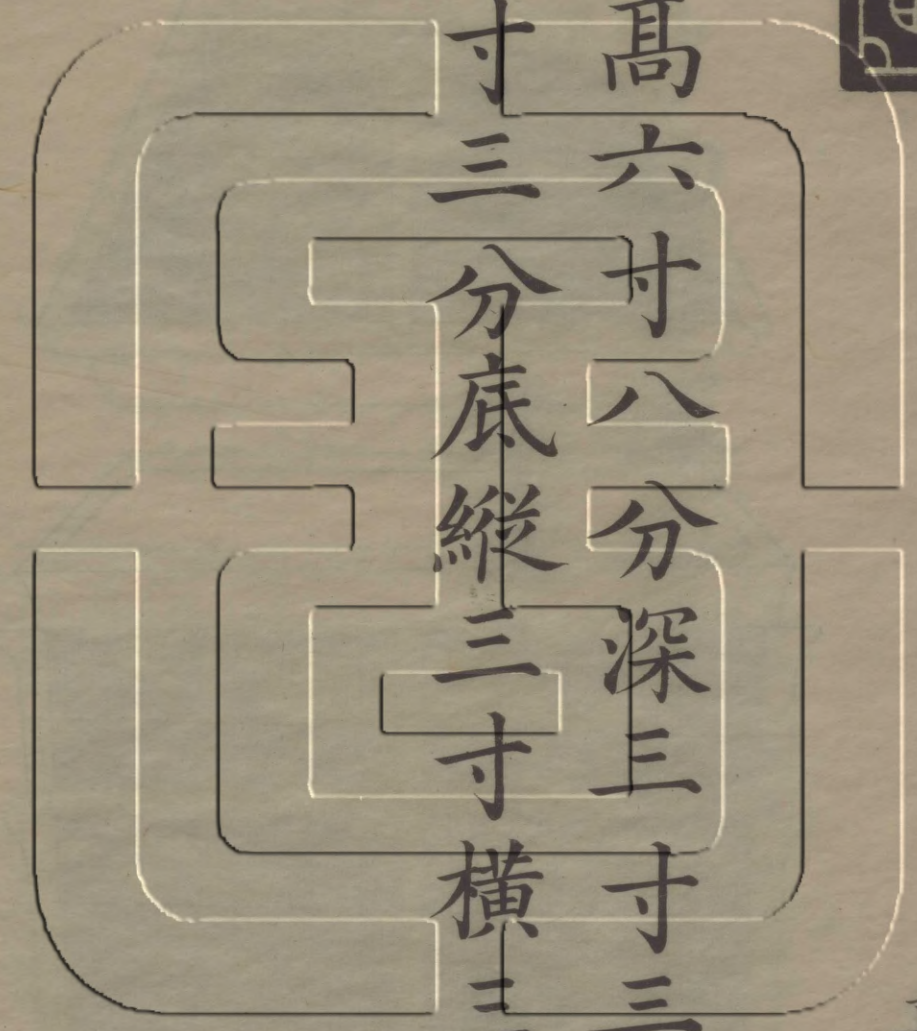 高六寸八分深三寸三
寸三分底縱三寸橫三